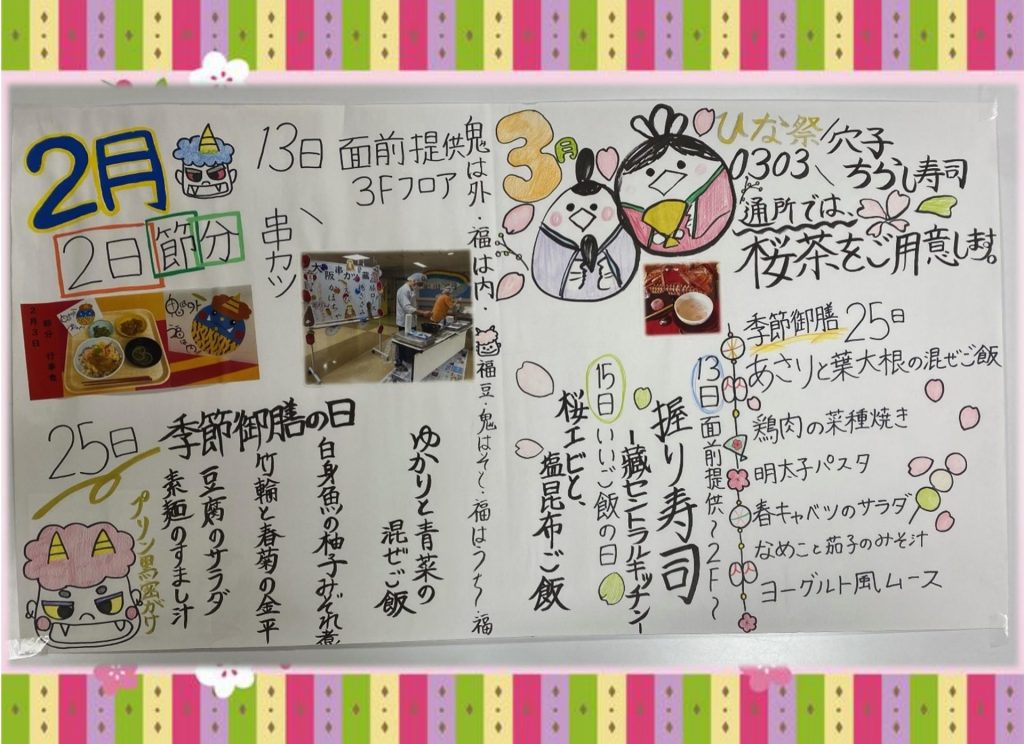 2月
2日 節分
13日 面前提供
3Fフロア
串カツ
鬼は外・福は内・福豆・鬼はそと・福はうち・福
2月3日 節分 行事食
大阪串カツ蔵
25日
季節御膳の日
ゆかりと青菜の
混ぜご飯
白身魚の柚子みぞれ煮
竹輪と春菊の金平
豆腐のサラダ
素麺のすまし汁
プリン黒蜜がけ
3月
ひな祭
0303
穴子
ちらし寿司
通所では、
桜茶をご用意します。
13日 面前提供～2F～
握り寿司
-蔵セントラルキッチン-
15日 いいご飯の日
桜エビと、
塩昆布ご飯
季節御膳 25日
あさりと葉大根の混ぜご飯
鶏肉の菜種焼き
明太子パスタ
春キャベツのサラダ
なめこと茄子のみそ汁
ヨーグルト風ムース